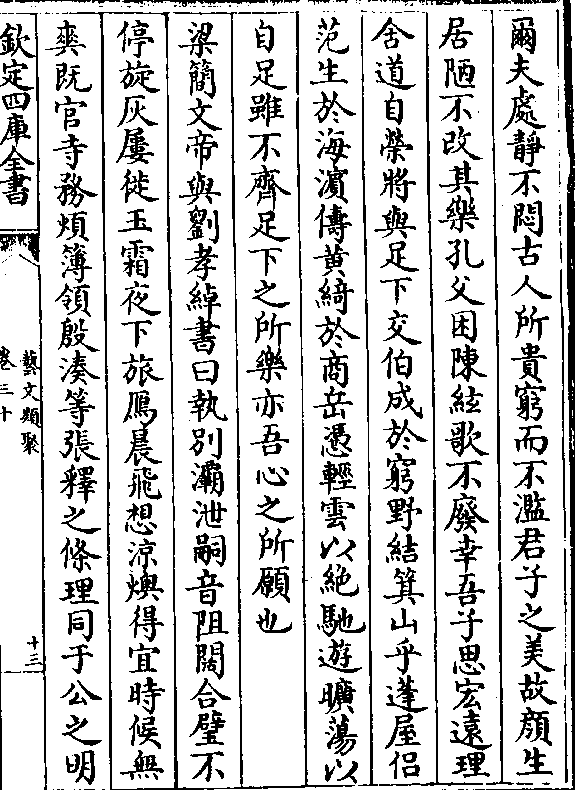 爾夫處靜不悶古人所貴窮而不濫君子之美故顔生
居陋不改其樂孔父困陳絃歌不廢幸吾子思宏遠理
舍道自榮將與足下交伯成於窮野結箕山乎蓬屋侣
范生於海濵儔黄綺於商岳憑輕雲以絶馳遊曠蕩以
自足雖不齊足下之所樂亦吾心之所願也
梁簡文帝與劉孝綽書曰執别灞泄嗣音阻闊合璧不
停旋灰屢徙玉霜夜下旅鴈晨飛想涼燠得宜時候無
爽既官寺務煩簿領殷湊等張釋之條理同于公之明
欽定四庫全書
藝文類聚
卷三十
十三